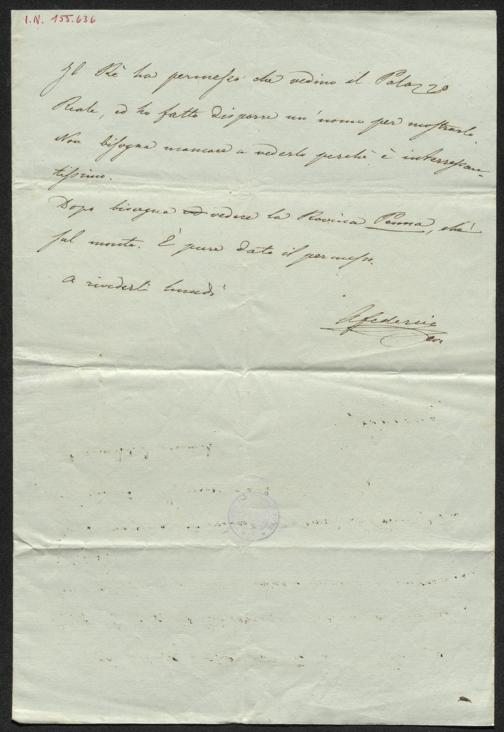 I.N. 155.636
Il Rè ha permesso che vedino il Palazzo
Reale, ed ho fatto disporre un' uomo per mostrarlo.
Non bisogna mancare a vederlo perchè è interessan-
tissimo.
Dopo bisogna vedere la Rovina Penna, ch'è
sul monte. È pure dato il permesso.
A rivederli lunedì